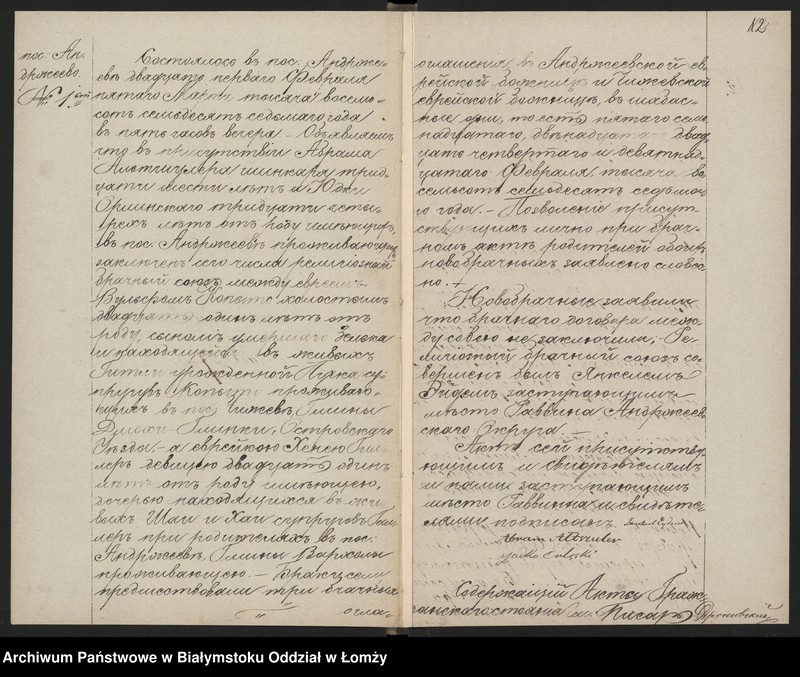 12
пос. Ан-
држеево.
№ 1ый
Состоялось въ пос. Андржее-
евѣ двадцать перваго Февраля
пятаго Марта тысяча восемь-
сотъ семьдесятъ седьмаго года
въ пять часовъ вечера. – Объявляемъ
что въ присутствіи Абрама
Альтшулера шинкаря трид-
цати шести лѣтъ и Юдки
Орлинскаго тридцати четы-
рехъ лѣтъ отъ роду имѣющихъ,
въ пос. Андржеевѣ проживающихъ
заключенъ сего числа религіозный
брачный союзъ между евреемъ
Вульфомъ Копыто холостымъ
двадцать одинъ лѣтъ отъ
роду, сыномъ умершаго Зелька
и находящейся въ живыхъ
урожденной су-
пруговъ Копыто проживаю-
щихъ въ пос. Чижевѣ, Гмины
Дмохи-Глинки, Островскаго
Уѣзда – а еврейкою Хенею
девицею двадцать одинъ
лѣтъ отъ роду имѣющею,
дочерью находящихся въ жи-
выхъ Шаи и Хаи супруговъ
при родителяхъ въ пос.
Андржеевѣ, Гмины Вархолы
проживающею. – Браку сему
предшествовали три брачныя
огла-
оглашенія, въ Андржеевской ев-
рейской божницѣ и Чижевской
еврейской божницѣ, въ шабас-
ные дни, то есть пятаго семь
надцатаго, двѣнадцатаго двад-
цать четвертаго и девятнад-
цатаго Февраля тысяча во-
семьсотъ семьдесятъ седьма-
го года. – Позволеніе присут-
ствующихъ лично при брач-
номъ актѣ родителей обоихъ
новобрачныхъ заявлено словес-
но. +
Новобрачные заявили
что брачнаго договора меж-
ду собою не заключили, Ре-
лигіозный брачный союзъ со-
вершенъ былъ Янкелемъ
заступающимъ
мѣсто Раввина Андржеев-
скаго Округа. –
Актъ сей присутству-
ющимъ и свидѣтелямъ
и нами заступающимъ
мѣсто Раввина и свидѣте-
лями подписанъ.
Abram Altszuler
Содержащій Акты Граж-
данскаго состоянія Писарь
Archiwum Państwowe w Białymstoku Oddział w Łomży